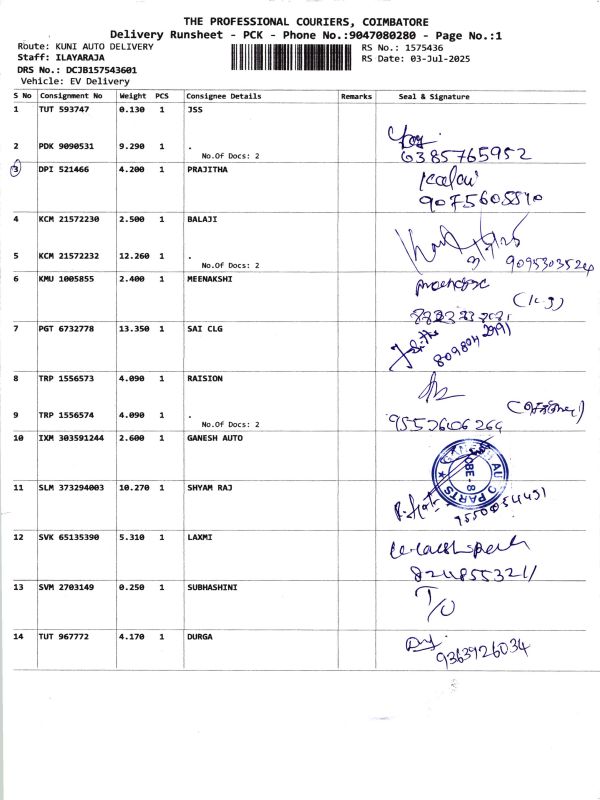 THE PROFESSIONAL COURIERS, COIMBATORE
Delivery Runsheet - PCK - Phone No.:9047080280 - Page No.:1
Route: KUNI AUTO DELIVERY RS No.: 1575436
Staff: ILAYARAJA RS Date: 03-Jul-2025
DRS No.: DCJB157543601
Vehicle: EV Delivery
S No Consignment No Weight PCS Consignee Details Remarks Seal & Signature
1 TUT 593747 0.130 1 JSS
2 PDK 9090531 9.290 1 .
No.Of Docs: 2 6385765952
3 DPI 521466 4.200 1 PRAJITHA
9075605510
4 KCM 21572230 2.500 1 BALAJI
5 KCM 21572232 12.260 1 . 9095303524
No.Of Docs: 2
6 KMU 1005855 2.400 1 MEENAKSHI
7 PGT 6732778 13.350 1 SAI CLG
8 TRP 1556573 4.090 1 RAISION
9 TRP 1556574 4.090 1 .
No.Of Docs: 2
10 IXM 303591244 2.600 1 GANESH AUTO
11 SLM 373294003 10.270 1 SHYAM RAJ
12 SVK 65135390 5.310 1 LAXMI
8248553211
13 SVM 2703149 0.250 1 SUBHASHINI
T/O
14 TUT 967772 4.170 1 DURGA
9363926034